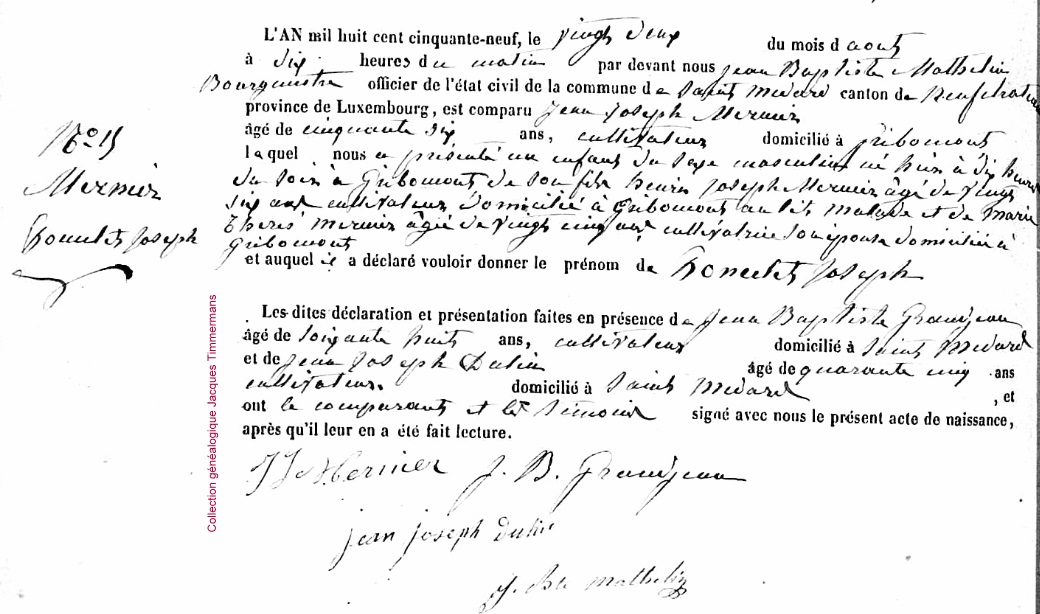 L'AN mil huit cent cinquante-neuf, le vingt deux du mois d aout
à dix heures du matin par devant nous Jean Baptiste Mathelin
Bourgmestre officier de l'état civil de la commune de Saint Medard canton de Neufchateau
province de Luxembourg, est comparu Jean Joseph Mernier
âgé de cinquante six ans, cultivateur domicilié à Gribomont
lequel nous a présenté un enfant du sexe masculin né hier à dix heures
du soir à Gribomont de son fils henri Joseph Mernier âgé de vingt
six ans cultivateur domicilié à Gribomont au lit malade et de marie
Therès Mernier âgée de vingt cinq ans cultivatrice son épouse domiciliée à
Gribomont
et auquel il a déclaré vouloir donner le prénom de Joseph
N° 15
Mernier
Joseph
Les dites déclaration et présentation faites en présence de Jean Baptiste Grandjean
âgé de soixante huit ans, cultivateur domicilié à Saint Medard
et de Jean Joseph Dulin âgé de quarante cinq ans
cultivateur. domicilié à Saint Medard , et
ont le comparant et les témoins signé avec nous le présent acte de naissance,
après qu'il leur en a été fait lecture.
J J Mernier J. B. Grandjean
jean joseph Dulin
J. Bte mathelin
Collection généalogique Jacques Timmermans